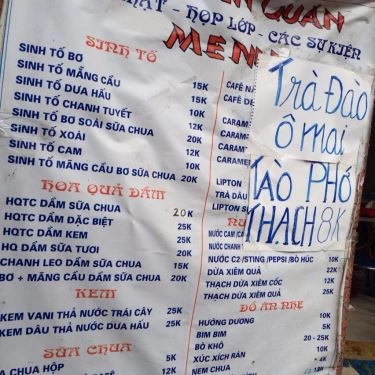 QUÁN
NHẬT - HỌP LỚP - CÁC SỰ KIỆN
SINH TỐ
SINH TỐ BƠ
SINH TỐ MÃNG CẦU 15K
SINH TỐ DƯA HẤU 15K
SINH TỐ CHANH TUYẾT 10K
SINH TỐ BƠ SOÀI SỮA CHUA 12K
SINH TỐ XOÀI 20K
SINH TỐ CAM 12K
SINH TỐ MÃNG CẦU BƠ SỮA CHUA 20K
HOA QUẢ DẦM
HQTC DẦM SỮA CHUA 20K
HQTC DẦM ĐẶC BIỆT 25K
HQTC DẦM KEM 25K
HQ DẦM SỮA TƯƠI 20K
CHANH LEO DẦM SỮA CHUA 15K
BƠ + MÃNG CẦU DẦM SỮA CHUA 20K
KEM
KEM VANI THẢ NƯỚC TRÁI CÂY 25K
KEM DÂU THẢ NƯỚC DƯA HẤU 25K
SỮA CHUA
SỮA CHUA HỘP 5K
CAFÉ
CAFÉ
CARAM
CARAM
CARAMEL
LIPTON
TRÀ DÂU
LIPTON
NƯỚC CAM
NƯỚC CHANH
NƯỚC C2/STING /PEPSI /BÒ HÚC 10K
DỪA XIÊM QUẢ 22K
THẠCH DỪA XIÊM CỐC 12K
THẠCH DỪA XIÊM QUẢ 25K
ĐỒ ĂN NHẸ
HƯỚNG DƯƠNG 10K
BIM BIM 5K
BÒ KHÔ 20 - 25K
XÚC XÍCH RÁN 10K
NEM CHUA 4K
Trà Đào
ô mai
TÀO PHỚ
THẠCH 8K